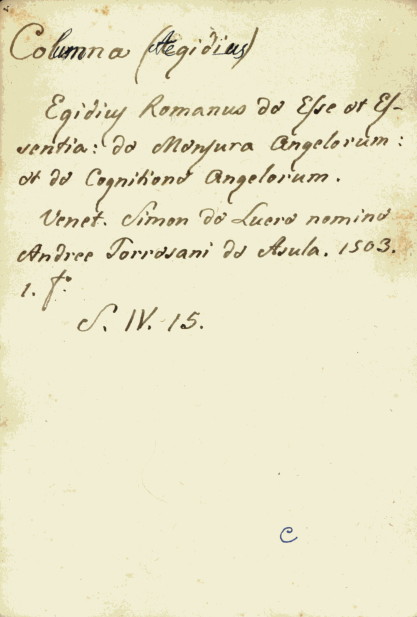 Columna (Aegidius)
Egidius Romanus de Esse et Es-
sentia: de Mensura Angelorum:
et de Cognitione Angelorum.
Venet. Simon de Luere nomine
Andree Torresani de Asula. 1503.
1. fº
S. IV. 15.
C